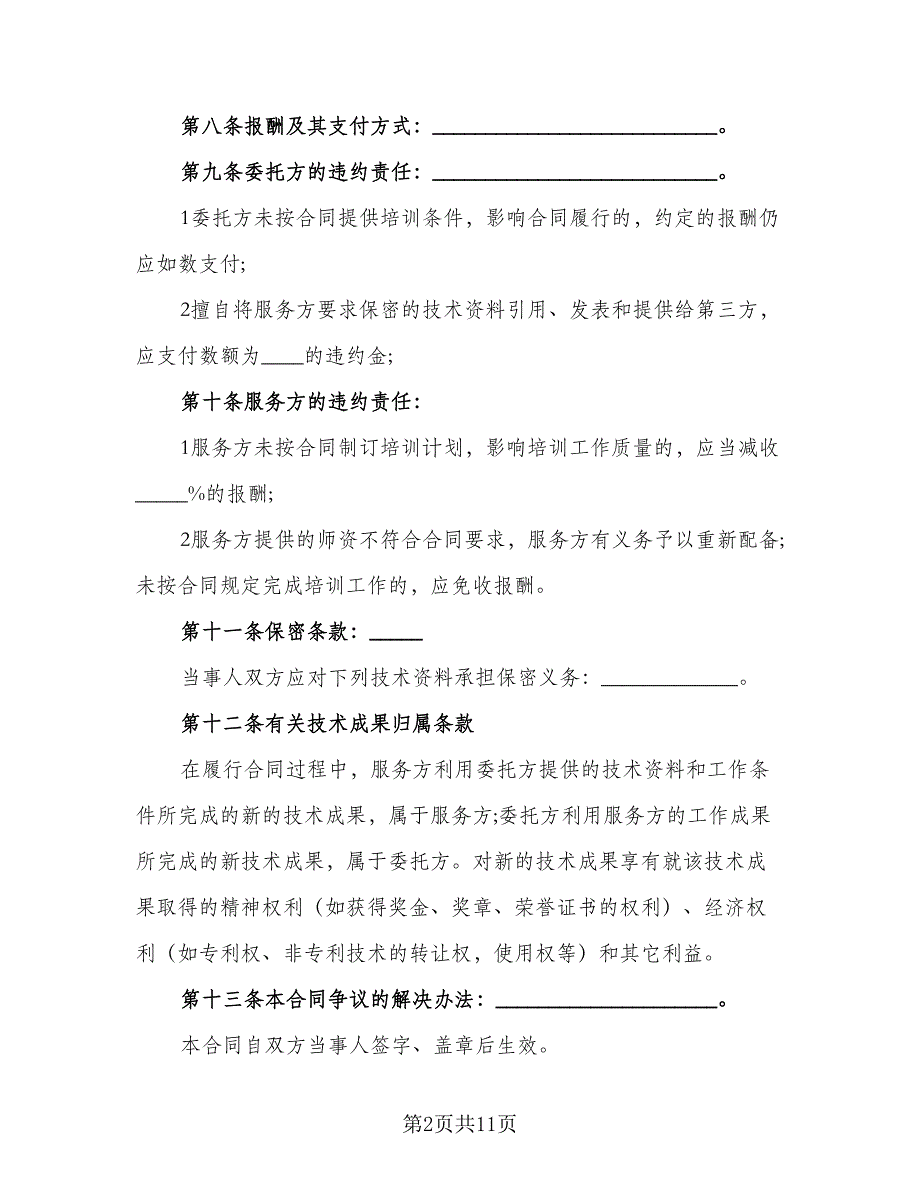 第八条报酬及其支付方式：___________________________。
第九条委托方的违约责任：___________________________。
1委托方未按合同提供培训条件，影响合同履行的，约定的报酬仍
应如数支付;
2擅自将服务方要求保密的技术资料引用、发表和提供给第三方，
应支付数额为____的违约金;
第十条服务方的违约责任：
1服务方未按合同制订培训计划，影响培训工作质量的，应当减收
_____%的报酬;
2服务方提供的师资不符合合同要求，服务方有义务予以重新配备;
未按合同规定完成培训工作的，应免收报酬。
第十一条保密条款：_____
当事人双方应对下列技术资料承担保密义务：_____________。
第十二条有关技术成果归属条款
在履行合同过程中，服务方利用委托方提供的技术资料和工作条
件所完成的新的技术成果，属于服务方;委托方利用服务方的工作成果
所完成的新技术成果，属于委托方。对新的技术成果享有就该技术成
果取得的精神权利（如获得奖金、奖章、荣誉证书的权利）、经济权
利（如专利权、非专利技术的转让权，使用权等）和其它利益。
第十三条本合同争议的解决办法：_____________________。
本合同自双方当事人签字、盖章后生效。
第2页共11页